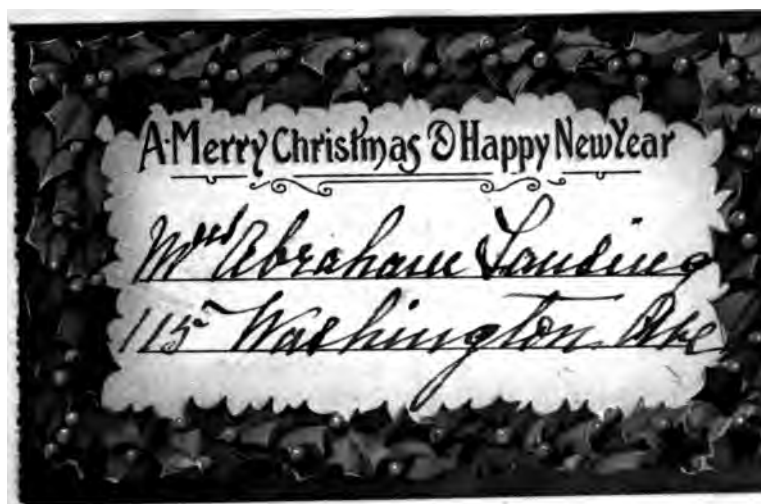 A Merry Christmas & Happy New Year
Mrs Abraham Lansing
115 Washington Ave